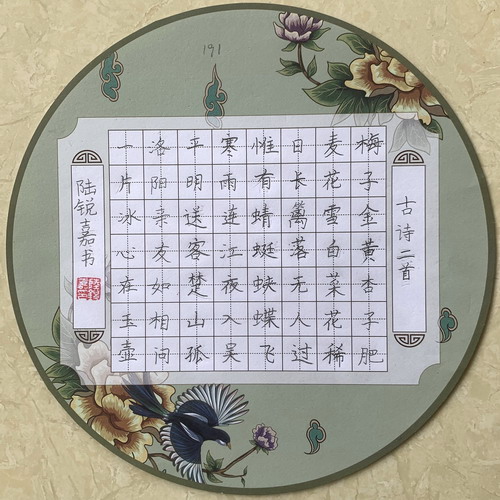 191
古诗二首
梅子金黄杏子肥
麦花雪白菜花稀
日长篱落无人过
惟有蜻蜓蛱蝶飞
寒雨连江夜入吴
平明送客楚山孤
洛阳亲友如相问
一片冰心在玉壶
陆锐嘉书